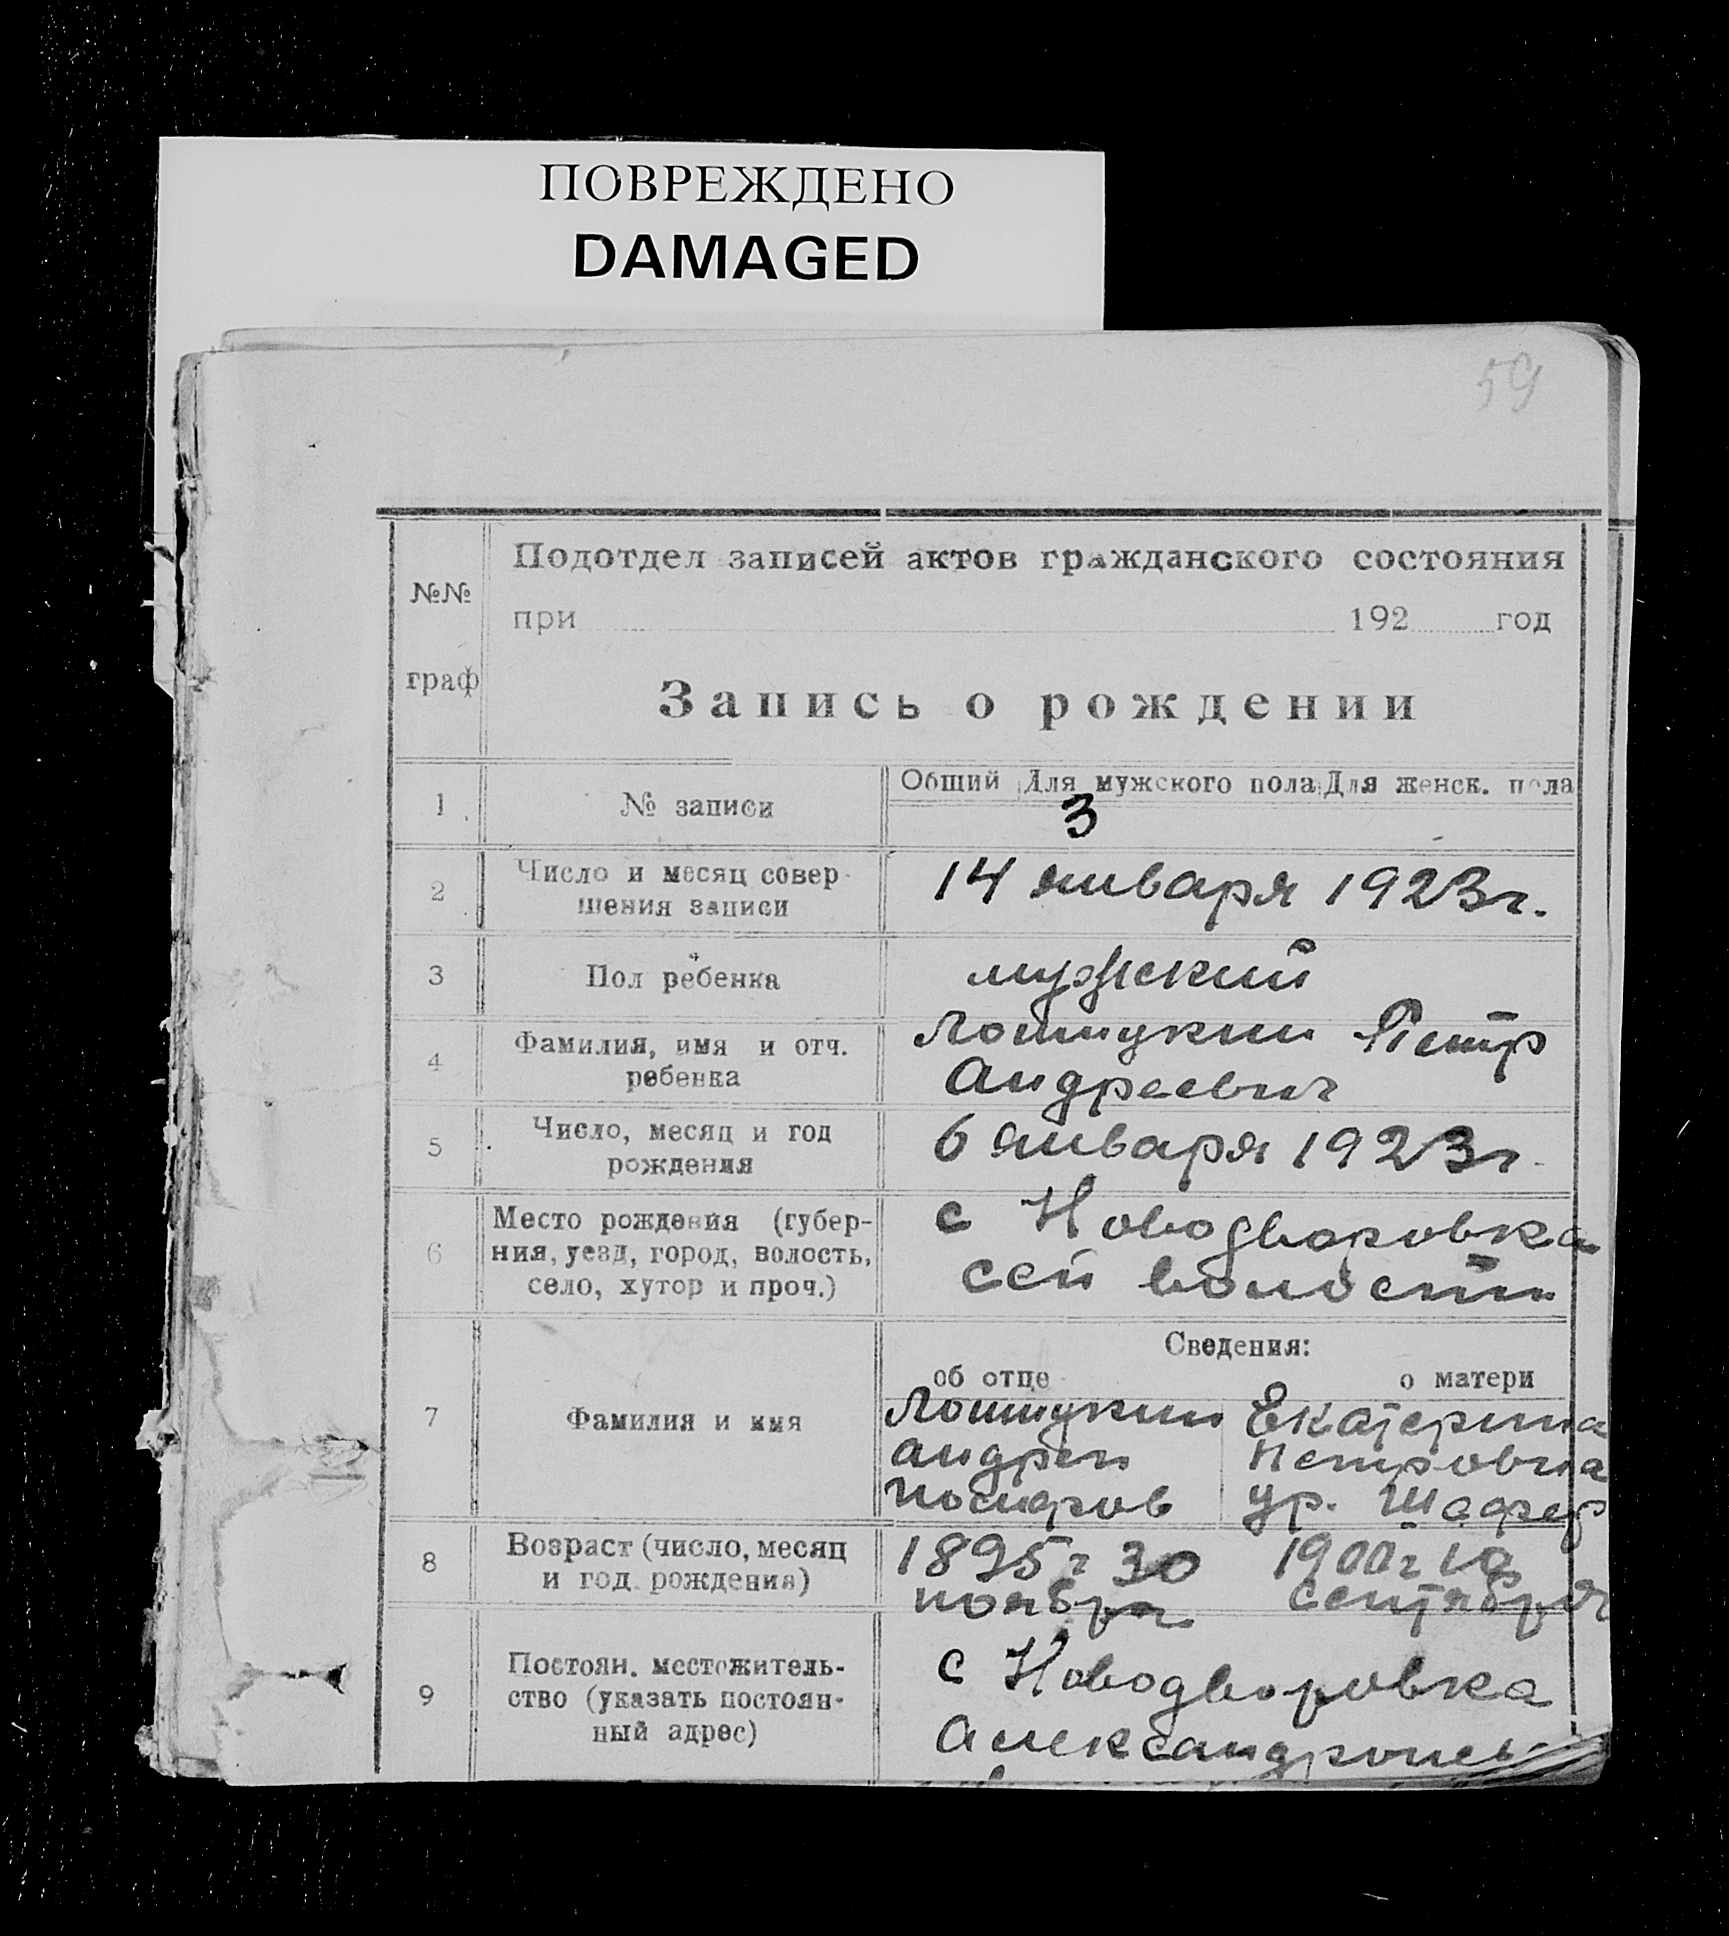 ПОВРЕЖДЕНО
DAMAGED
59
№№
граф
Подотдел записей актов гражданского состояния
при 192 год
Запись о рождении
1 № записи
Общий Для мужского пола Для женск. пола
3
2 Число и месяц совер-
шения записи
14 января 1923 г.
3 Пол ребенка
мужский
4 Фамилия, имя и отч.
ребенка
Петр
Андреевич
5 Число, месяц и год
рождения
6 января 1923 г.
6 Место рождения (губер-
ния, уезд, город, волость,
село, хутор и проч.)
с Новодворовка
сей волости
Сведения:
об отце о матери
7 Фамилия и имя
Андрей
Екатерина
Петровна
ур. Шафер
8 Возраст (число, месяц
и год рождения)
1895 г 30
ноября
1900 г
сентября
9 Постоян. местожитель-
ство (указать постоян-
ный адрес)
с Новодворовка